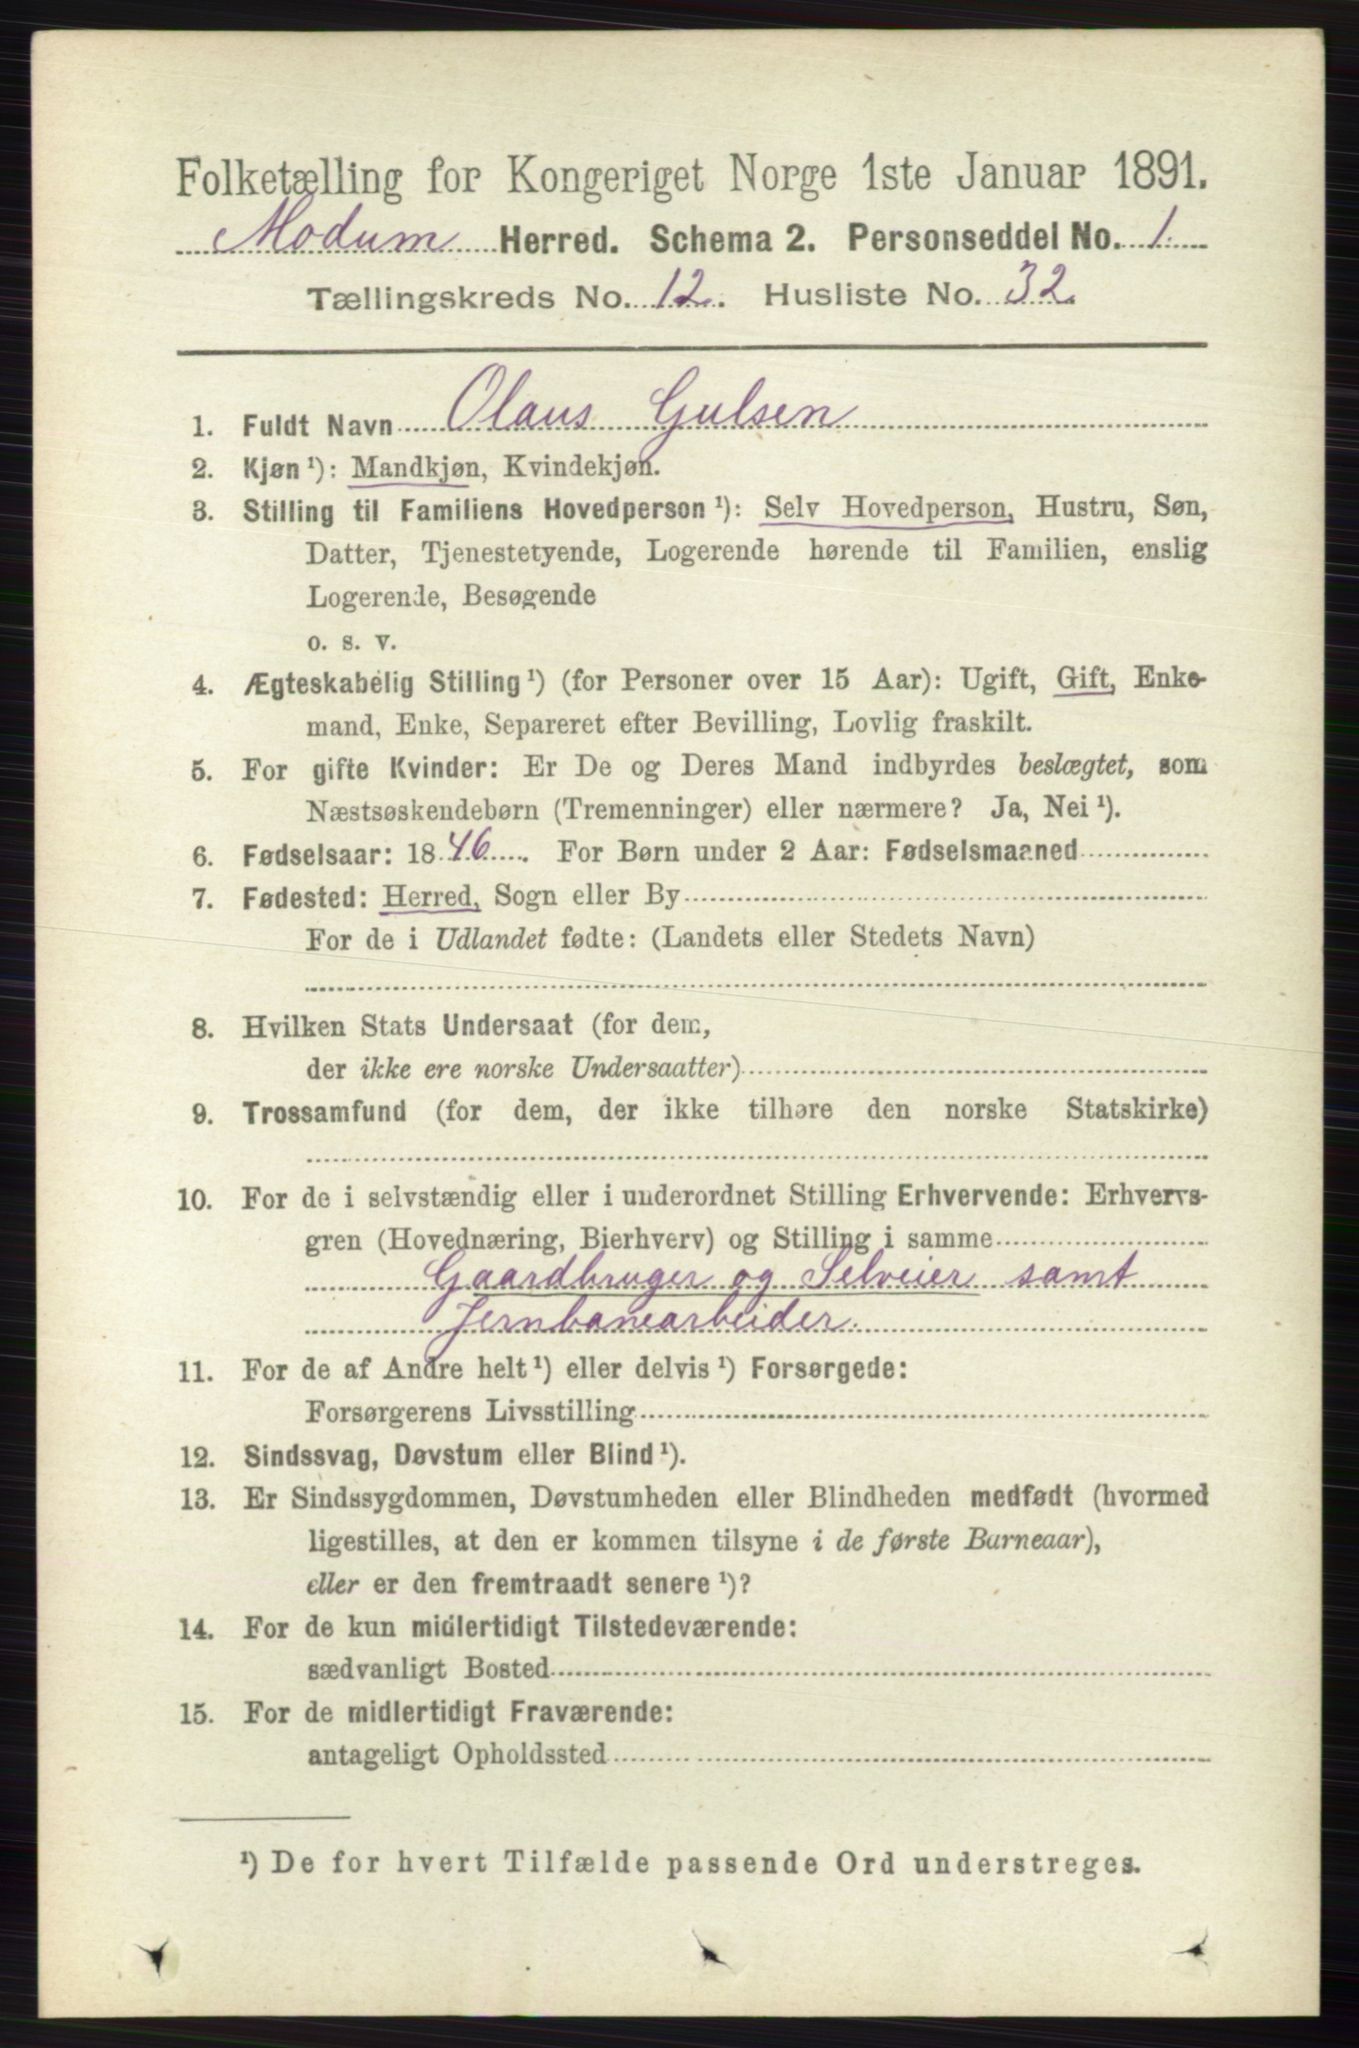 Folketælling for Kongeriget Norge 1ste Januar 1891.
Modum Herred. Schema 2. Personseddel No. 1.
Tællingskreds No. 12. Husliste No. 32.
1. Fuldt Navn Olaus Gulsen
2. Kjøn ¹): Mandkjøn, Kvindekjøn.
3. Stilling til Familiens Hovedperson ¹): Selv Hovedperson, Hustru, Søn,
Datter, Tjenestetyende, Logerende hørende til Familien, enslig
Logerende, Besøgende
o. s. v.
4. Ægteskabelig Stilling ¹) (for Personer over 15 Aar): Ugift, Gift, Enke-
mand, Enke, Separeret efter Bevilling, Lovlig fraskilt.
5. For gifte Kvinder: Er De og Deres Mand indbyrdes beslægtet, som
Næstsøskendebørn (Tremenninger) eller nærmere? Ja, Nei ¹).
6. Fødselsaar: 1846. For Børn under 2 Aar: Fødselsmaaned
7. Fødested: Herred, Sogn eller By
For de i Udlandet fødte: (Landets eller Stedets Navn)
8. Hvilken Stats Undersaat (for dem,
der ikke ere norske Undersaatter)
9. Trossamfund (for dem, der ikke tilhøre den norske Statskirke)
10. For de i selvstændig eller i underordnet Stilling Erhvervende: Erhvervs-
gren (Hovednæring, Bierhverv) og Stilling i samme
Gaardbruger og Selveier samt
Jernbanearbeider.
11. For de af Andre helt ¹) eller delvis ¹) Forsørgede:
Forsørgerens Livsstilling
12. Sindssvag, Døvstum eller Blind ¹).
13. Er Sindssygdommen, Døvstumheden eller Blindheden medfødt (hvormed
ligestilles, at den er kommen tilsyne i de første Barneaar),
eller er den fremtraadt senere ¹)?
14. For de kun midlertidigt Tilstedeværende:
sædvanligt Bosted
15. For de midlertidigt Fraværende:
antageligt Opholdssted
¹) De for hvert Tilfælde passende Ord understreges.